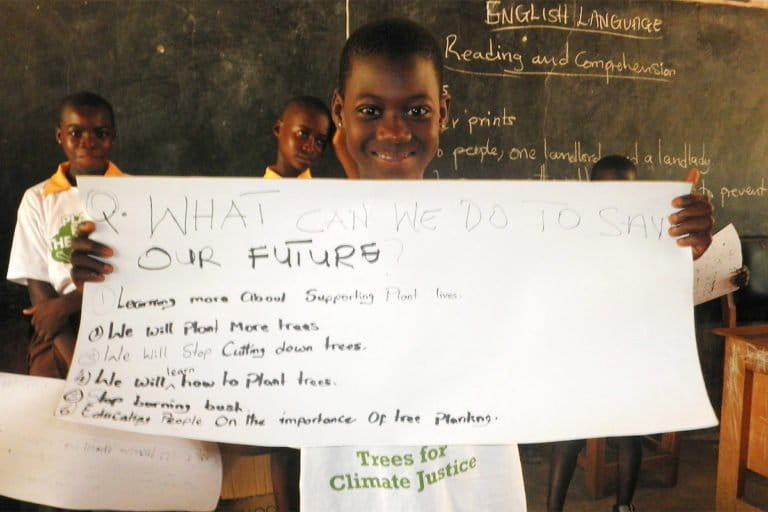 ENGLISH LANGUAGE
Reading and Comprehension
prints
people, one landlord and a landlady
to prevent
Q. WHAT CAN WE DO TO SAV
OUR FUTURE?
① Learning more about Supporting Plant lives.
② We will Plant More trees
③ We Will Stop Cutting down trees.
④ We will learn how to Plant trees.
⑤ Stop burning bush.
⑥ Educating People On the importance Of tree Planting.
Trees for
Climate Justice